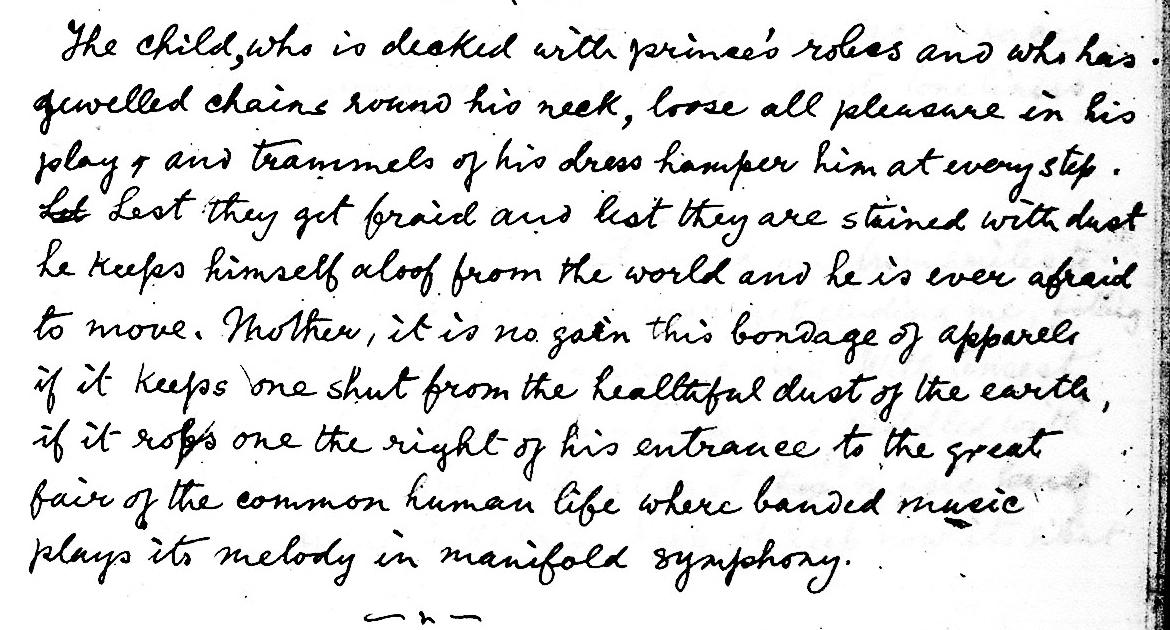 The child, who is decked with prince's robes and who has
jewelled chains round his neck, loose all pleasure in his
play, and trammels of his dress hamper him at every step.
Let Lest they get fraid and lest they are stained with dust
he keeps himself aloof from the world and he is ever afraid
to move. Mother, it is no gain this bondage of apparels
if it keeps one shut from the healthful dust of the earth,
if it robs one the right of his entrance to the great
fair of the common human life where banded music
plays its melody in manifold symphony.